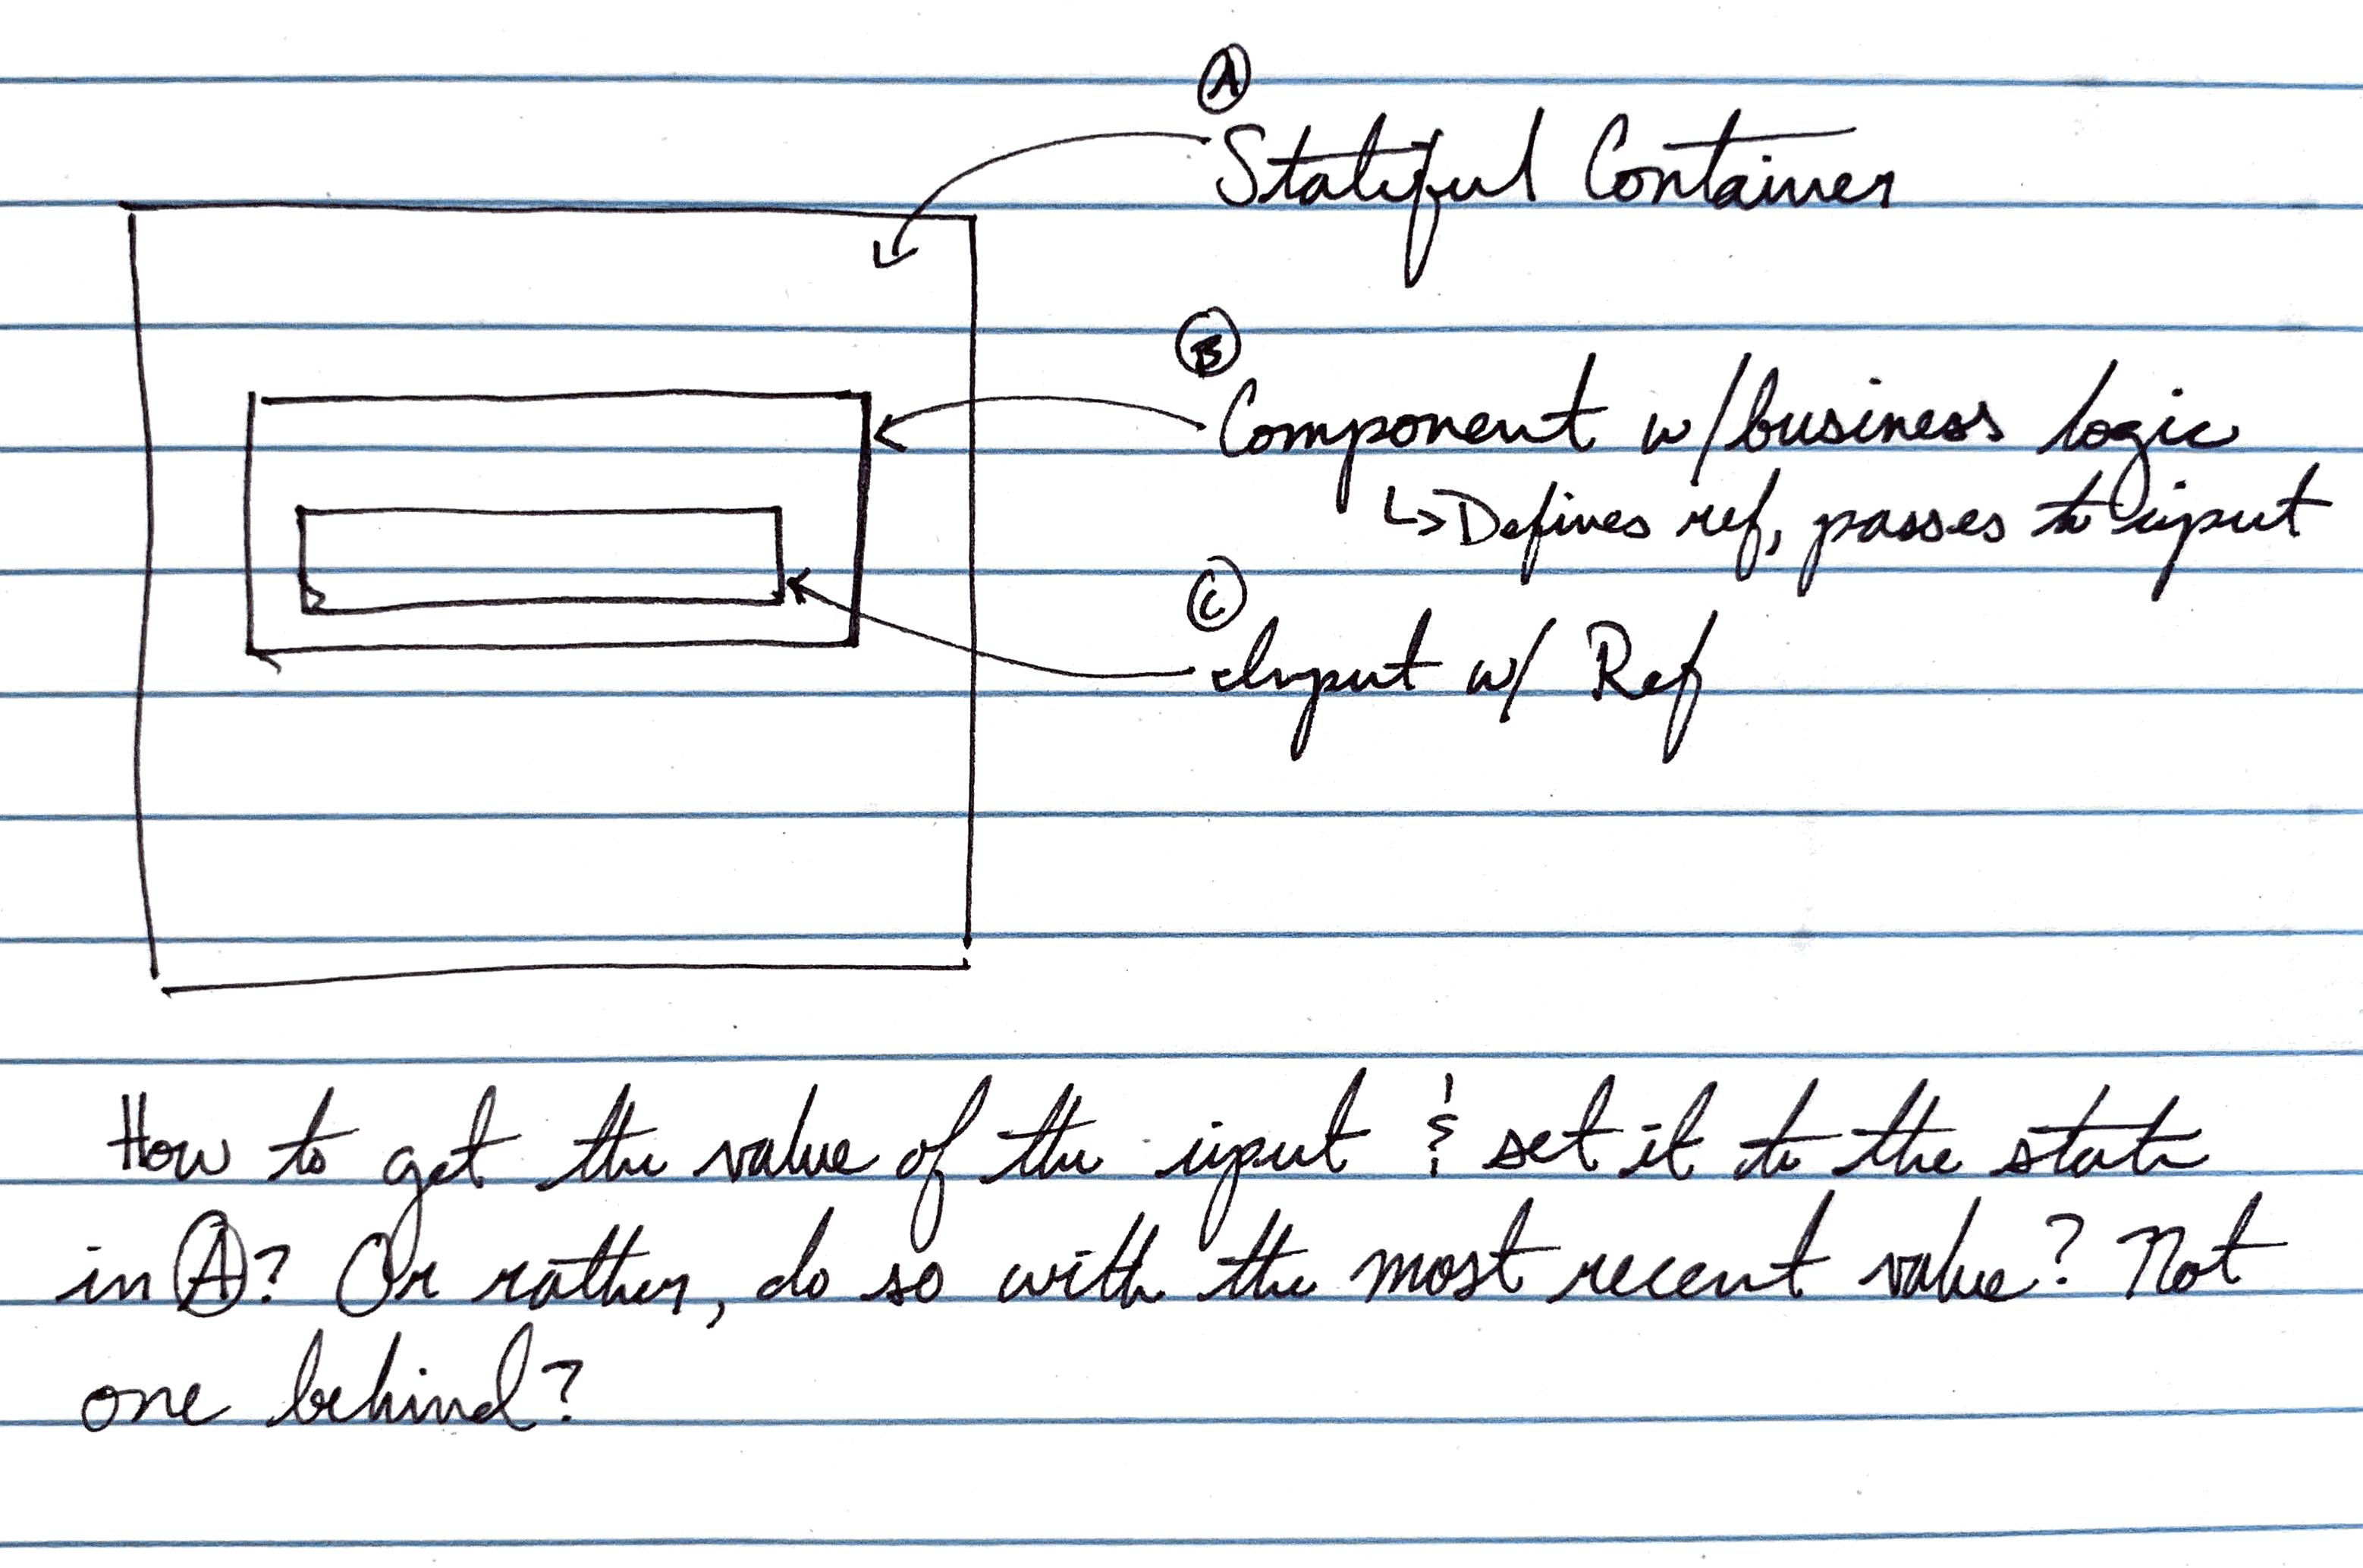 A
Stateful Container
B
Component w/business logic
↳ Defines ref, passes to input
C
Input w/ Ref
How to get the value of the input & set it to the state
in A? Or rather, do so with the most recent value? Not
one behind?